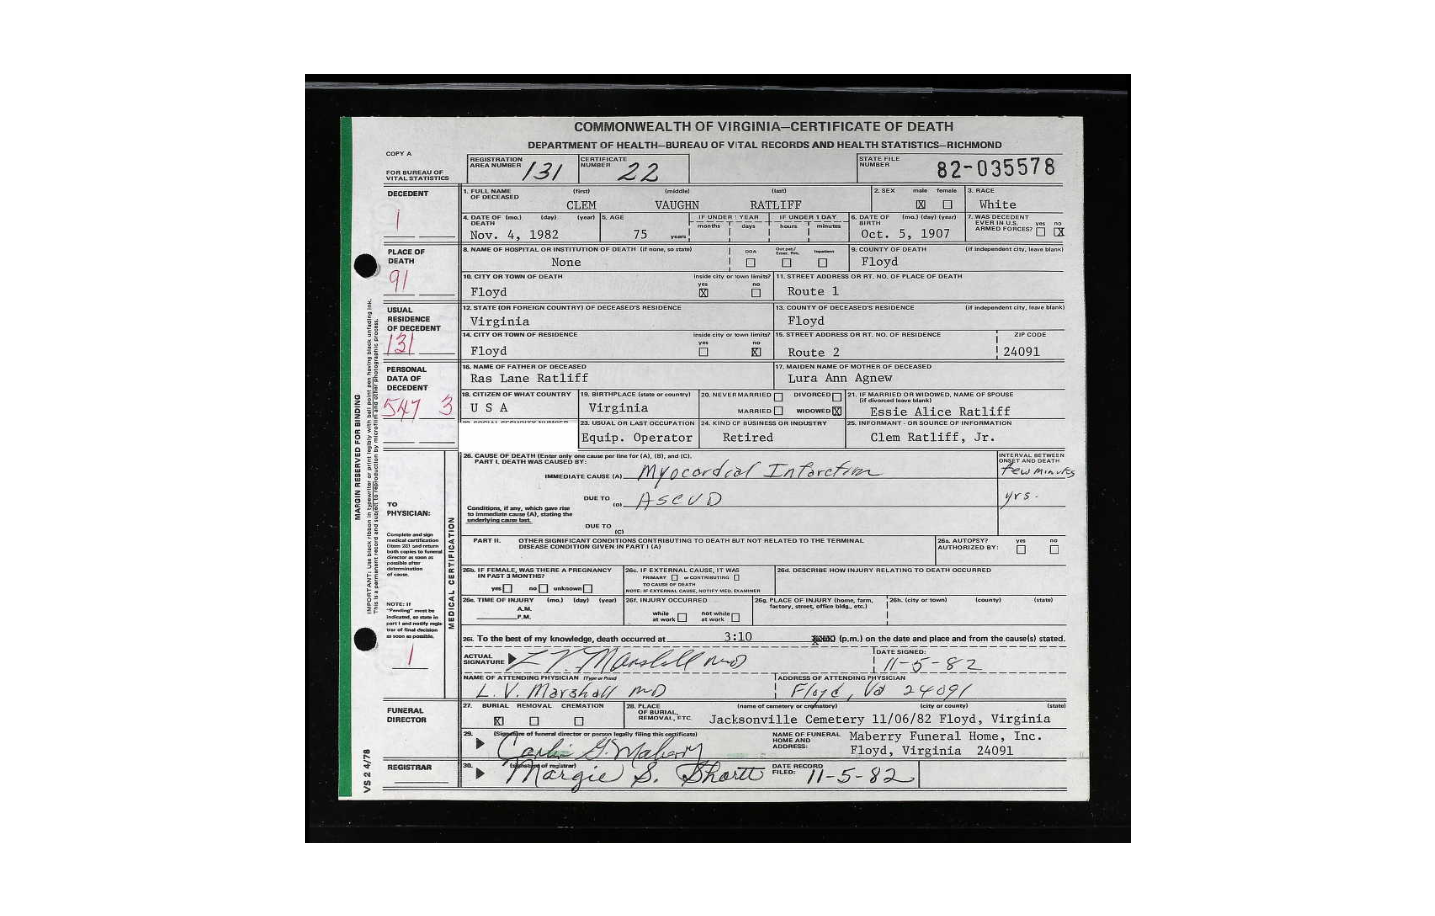 COMMONWEALTH OF VIRGINIA—CERTIFICATE OF DEATH
DEPARTMENT OF HEALTH—BUREAU OF VITAL RECORDS AND HEALTH STATISTICS—RICHMOND
COPY A
FOR BUREAU OF VITAL STATISTICS
REGISTRATION AREA NUMBER 131
CERTIFICATE NUMBER 22
STATE FILE NUMBER 82-035578
DECEDENT
1
1. FULL NAME OF DECEASED (first) (middle) (last)
CLEM VAUGHN RATLIFF
2. SEX male female
X
3. RACE
White
4. DATE OF DEATH (mo.) (day) (year)
Nov. 4, 1982
5. AGE
75 years
IF UNDER 1 YEAR months days
IF UNDER 1 DAY hours minutes
6. DATE OF BIRTH (mo.) (day) (year)
Oct. 5, 1907
7. WAS DECEDENT EVER IN U.S. ARMED FORCES? yes no
X
PLACE OF DEATH
91
8. NAME OF HOSPITAL OR INSTITUTION OF DEATH (if none, so state)
None
DOA
Inpatient
9. COUNTY OF DEATH (if independent city, leave blank)
Floyd
10. CITY OR TOWN OF DEATH
Floyd
inside city or town limits? yes no
X
11. STREET ADDRESS OR RT. NO. OF PLACE OF DEATH
Route 1
USUAL RESIDENCE OF DECEDENT
131
12. STATE (OR FOREIGN COUNTRY) OF DECEASED'S RESIDENCE
Virginia
13. COUNTY OF DECEASED'S RESIDENCE (if independent city, leave blank)
Floyd
14. CITY OR TOWN OF RESIDENCE
Floyd
inside city or town limits? yes no
X
15. STREET ADDRESS OR RT. NO. OF RESIDENCE
Route 2
ZIP CODE
24091
PERSONAL DATA OF DECEDENT
547 3
16. NAME OF FATHER OF DECEASED
Ras Lane Ratliff
17. MAIDEN NAME OF MOTHER OF DECEASED
Lura Ann Agnew
18. CITIZEN OF WHAT COUNTRY
U S A
19. BIRTHPLACE (state or country)
Virginia
20. NEVER MARRIED DIVORCED
MARRIED WIDOWED X
21. IF MARRIED OR WIDOWED, NAME OF SPOUSE (if divorced leave blank)
Essie Alice Ratliff
23. USUAL OR LAST OCCUPATION
Equip. Operator
24. KIND OF BUSINESS OR INDUSTRY
Retired
25. INFORMANT - OR SOURCE OF INFORMATION
Clem Ratliff, Jr.
MARGIN RESERVED FOR BINDING
MEDICAL CERTIFICATION
TO PHYSICIAN:
Complete and sign medical certification (item 26) and return both copies to funeral director as soon as possible after determination of cause.
NOTE: If "Pending" must be indicated, so state in part I and notify registrar of final decision as soon as possible.
1
26. CAUSE OF DEATH (Enter only one cause per line for (A), (B), and (C).
PART I. DEATH WAS CAUSED BY:
INTERVAL BETWEEN ONSET AND DEATH
IMMEDIATE CAUSE (A) Myocardial Infarction few minutes
DUE TO (B) ASCVD yrs.
Conditions, if any, which gave rise to immediate cause (A), stating the underlying cause last.
DUE TO (C)
PART II. OTHER SIGNIFICANT CONDITIONS CONTRIBUTING TO DEATH BUT NOT RELATED TO THE TERMINAL DISEASE CONDITION GIVEN IN PART I (A)
26a. AUTOPSY? AUTHORIZED BY: yes no
26b. IF FEMALE, WAS THERE A PREGNANCY IN PAST 3 MONTHS?
yes no unknown
26c. IF EXTERNAL CAUSE, IT WAS
PRIMARY or CONTRIBUTING
TO CAUSE OF DEATH
NOTE: IF EXTERNAL CAUSE, NOTIFY MED. EXAMINER
26d. DESCRIBE HOW INJURY RELATING TO DEATH OCCURRED
26e. TIME OF INJURY (mo.) (day) (year)
A.M.
P.M.
26f. INJURY OCCURRED
while at work not while at work
26g. PLACE OF INJURY (home, farm, factory, street, office bldg., etc.)
26h. (city or town) (county) (state)
26i. To the best of my knowledge, death occurred at 3:10 (p.m.) on the date and place and from the cause(s) stated.
ACTUAL SIGNATURE L V. Marshall MD
DATE SIGNED: 11-5-82
NAME OF ATTENDING PHYSICIAN (Type or Print)
L. V. Marshall MD
ADDRESS OF ATTENDING PHYSICIAN
Floyd, Va 24091
FUNERAL DIRECTOR
27. BURIAL REMOVAL CREMATION
X
28. PLACE OF BURIAL, REMOVAL, ETC. (name of cemetery or crematory) (city or county) (state)
Jacksonville Cemetery 11/06/82 Floyd, Virginia
29. (Signature of funeral director or person legally filing this certificate)
Carlin G. Maberry
NAME OF FUNERAL HOME AND ADDRESS:
Maberry Funeral Home, Inc.
Floyd, Virginia 24091
REGISTRAR
30. (signature of registrar)
Margie S. Shortt
DATE RECORD FILED: 11-5-82
VS 2 4/78